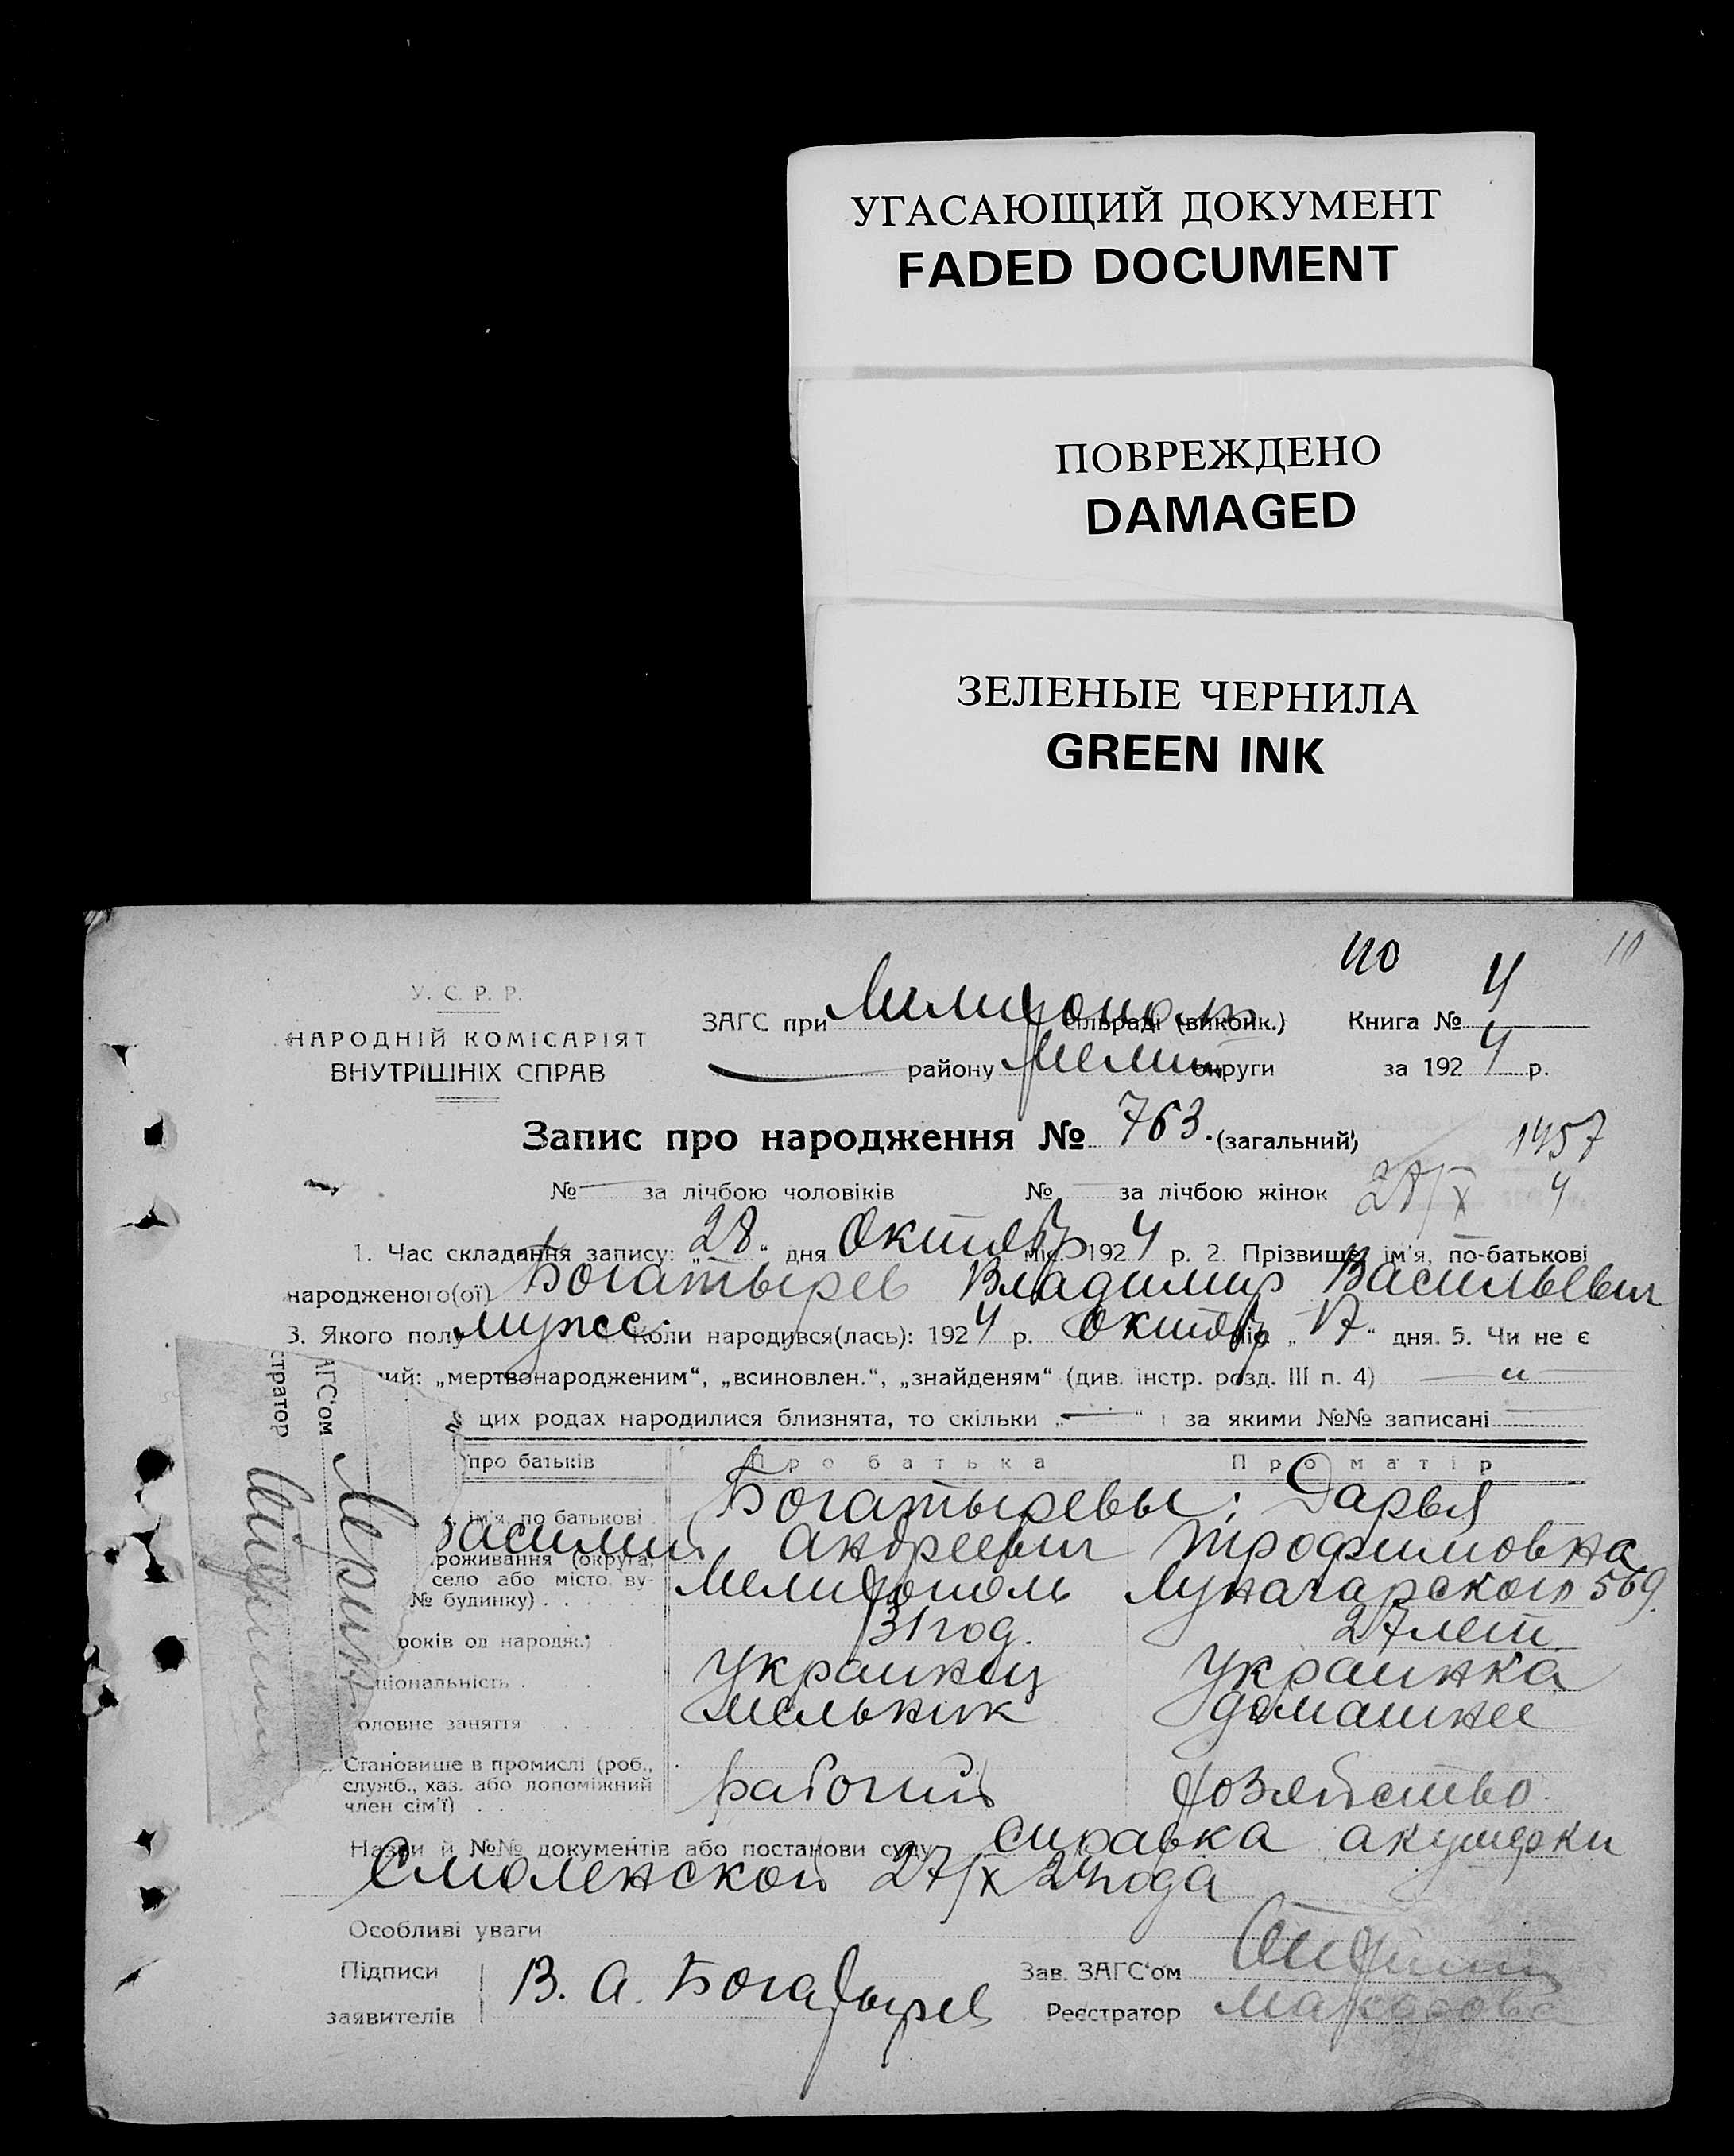 УГАСАЮЩИЙ ДОКУМЕНТ
FADED DOCUMENT
ПОВРЕЖДЕНО
DAMAGED
ЗЕЛЕНЫЕ ЧЕРНИЛА
GREEN INK
110 10
У. С. Р. Р.
НАРОДНІЙ КОМІСАРІЯТ
ВНУТРІШНІХ СПРАВ
ЗАГС при Мелитополь сільраді (викон᎐к.) Книга № 4
району Мелит округи за 1924 р.
Запис про народження № 763. (загальний)
1457
№ — за лічбою чоловіків № — за лічбою жінок 28/X 4
1. Час складання запису: „28“ дня Октябр міс. 1924 р. 2. Прізвище, ім'я, по-батькові
народженого(ої) Богатырев Владимир Васильевич
3. Якого полу мужс. 4. Коли народився(лась): 1924 р. Октябр міс. „17“ дня. 5. Чи не є
ний: „мертвонародженим“, „всиновлен.“, „знайденям“ (див. інстр. розд. III п. 4)
цих родах народилися близнята, то скільки „—“ і за якими №№ записані
про батьків Про батька Про матір
ім'я, по батькові Богатыревы: Дарья
Василий Андреевич Трофимовна
роживання (округа,
село або місто, ву-
№ будинку) Мелитополь Луначарского 569
років од народж.) 31 год. 27 лет
ціональність Украинец Украинка
оловне заняття мельник домашнее
Становище в промислі (роб.,
служб., хаз. або допоміжний
член сім'ї) рабочий хозяйство
Назви й №№ документів або постанови суду справка акушерки
Смоленской 27/X 24 года
Особливі уваги
Підписи
заявителів В. А. Богатырев
Зав. ЗАГС'ом
Реєстратор
АГС'ом
стратор